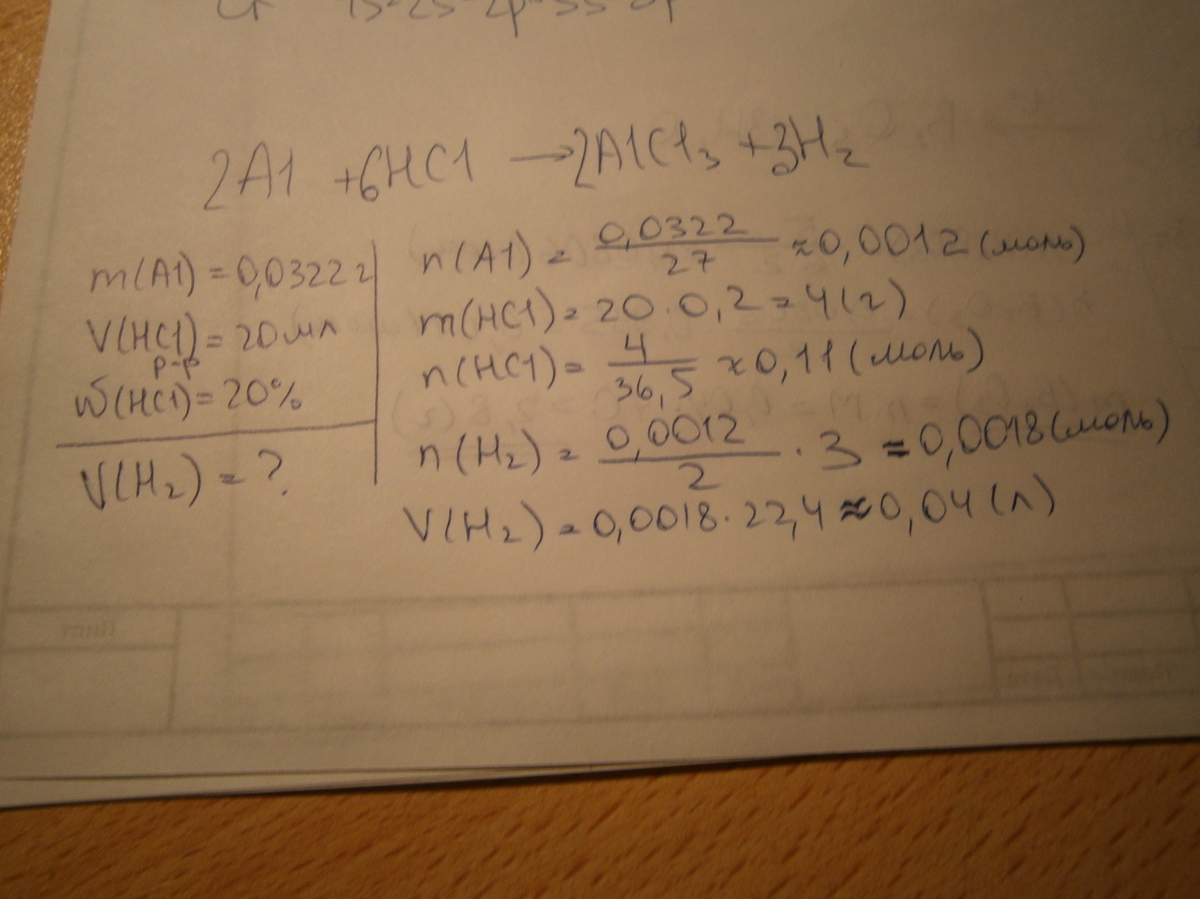 1s 2s 2p 3s 3p
2Al + 6HCl → 2AlCl₃ + 3H₂
m(Al) = 0,0322 г
V(HCl) = 20 мл
р-р
ω(HCl) = 20%
V(H₂) = ?
n(Al) = 0,0322 / 27 ≈ 0,0012 (моль)
m(HCl) = 20 · 0,2 = 4 (г)
n(HCl) = 4 / 36,5 ≈ 0,11 (моль)
n(H₂) = 0,0012 / 2 · 3 = 0,0018 (моль)
V(H₂) = 0,0018 · 22,4 ≈ 0,04 (л)